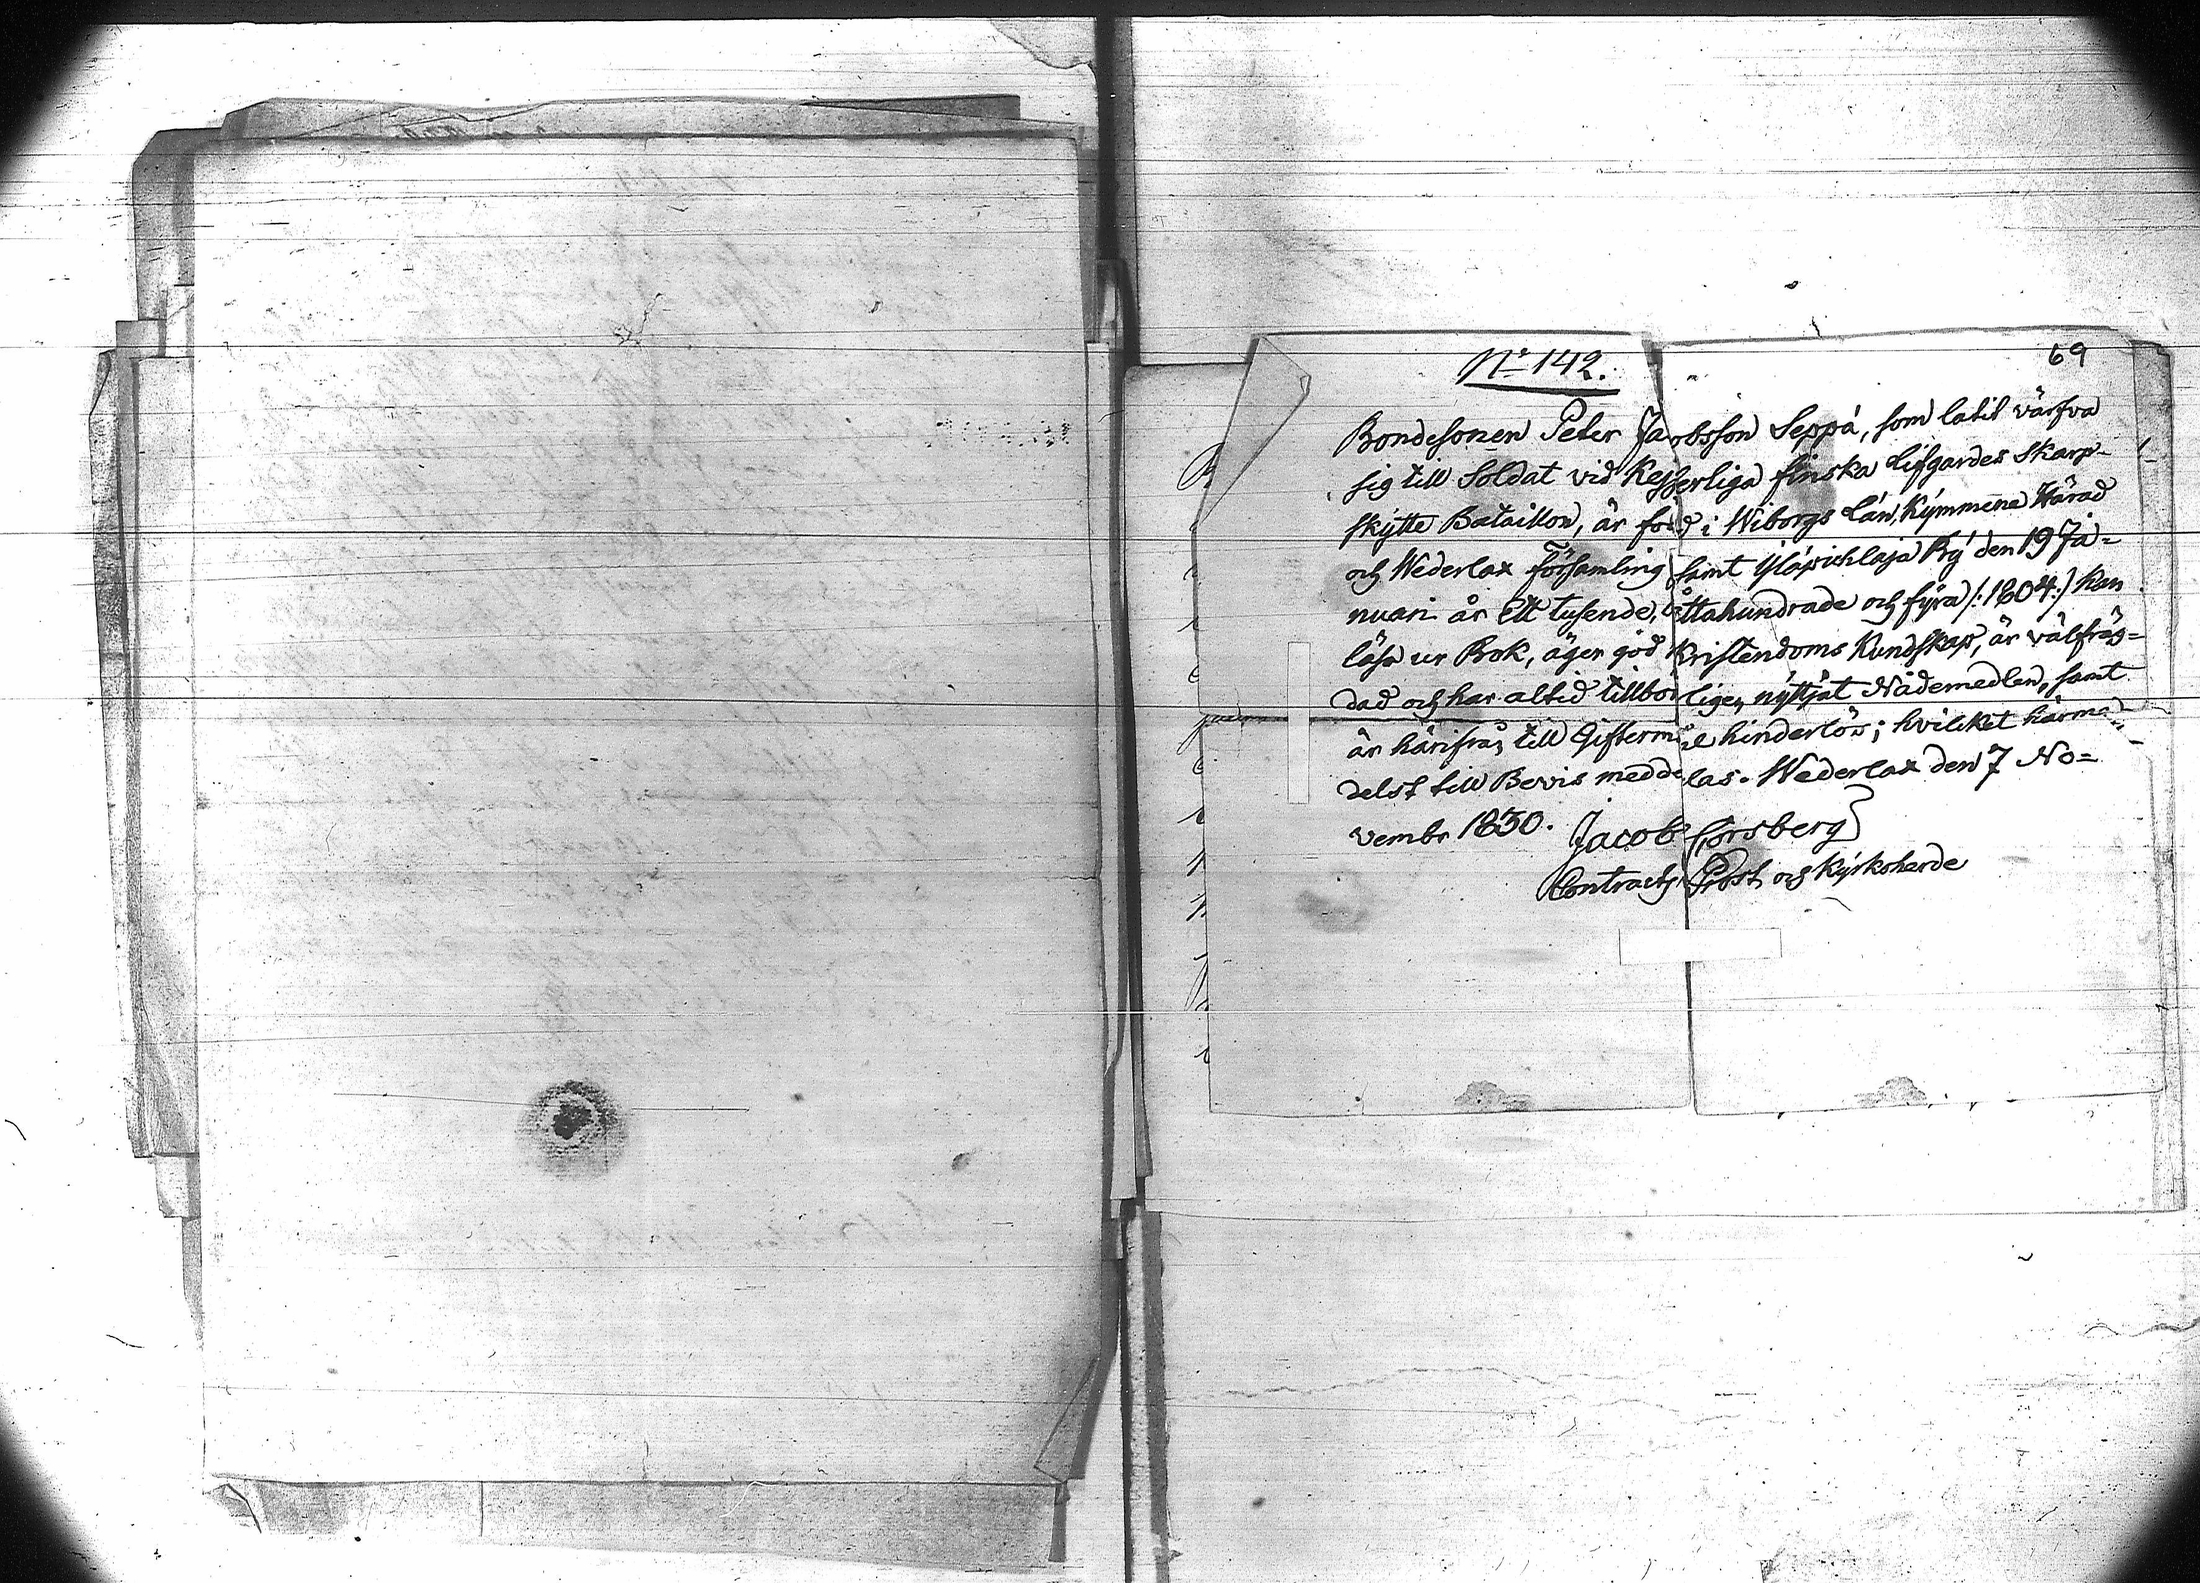 69
Nº 142.
Bondesonen Peter Jacobsson Seppä, som låtit värfva
sig till Soldat vid Kejserliga finska Lifgardes Skarp-
skytte Bataillon, är född i Wiborgs Län, Kymmene Härad
och Wederlax Församling samt Yläpihlaja By den 19 Ja=
nuari år Ett tusende, åttahundrade och fyra /:1804:/ kan
läsa ur Bok, äger god Kristendoms Kundskap, är välfräg=
dad och har altid tillbörligen nyttjat Nådemedlen, samt
är härifrån till Giftermål hinderlös; hvilket härme-
delst till Bevis meddelas. Wederlax den 7 No=
vembr 1830.
Jacob Forsberg
Contracts Prost och Kyrkoherde